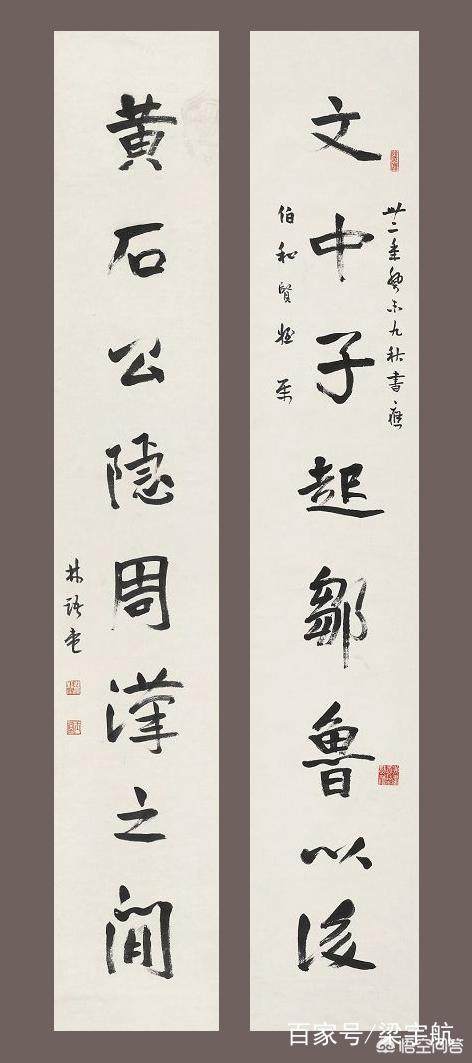 文中子起鄒魯以後
卅二年癸未九秋書應
伯和賢姪属
黄石公隱周漢之閒
林語堂
百家号/梁宇航
悟空问答